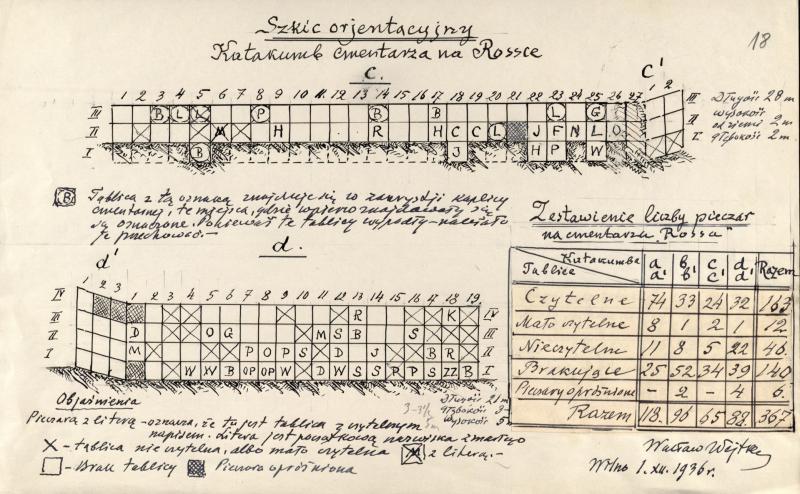 Szkic orjentacyjny
Katakumb cmentarza na Rossce
18
c.
c'
1 2 3 4 5 6 7 8 9 10 11 12 13 14 15 16 17 18 19 20 21 22 23 24 25 26 27
1 2
III B L L P B B L G III
II H R H C C L J F N L O II
I B J H P W I
Długość 28 m
wysokość
od ziemi 2 m
głębokość 2 m
B Tablica z tą oznaką znajduje się w zakrystji kaplicy
cmentarnej, te miejsca, gdzie wpierw znajdowały się
są oznaczone. Ponieważ te tablicy wypadły - należało
je przechować.-
d.
d'
1 2 3
1 2 3 4 5 6 7 8 9 10 11 12 13 14 15 16 17 18 19
IV R K IV
III D O G M S B S III
II M P O P S D J B R II
I W W B OP OP W D W S S P P S ZZ B I
Długość 21 m
głębokość 3-
wysokość 5
Objaśnienia
Pieczara z literą - oznacza, że tu jest tablica z czytelnym
napisem. Litera jest początkową nazwiska zmarłego
X - tablica nie czytelna, albo mało czytelna M z literą.-
- Brak tablicy - Pieczara opróżniona
Zestawienie liczby pieczar
na cmentarzu "Rossa"
Katakumba a a' b b' c c' d d' Razem
Tablice
Czytelne 74 33 24 32 163
Mało czytelne 8 1 2 1 12
Nieczytelne 11 8 5 22 46
Brakujące 25 52 34 39 140
Pieczary opróżnione - 2 - 4 6
Razem 118. 96 65 88. 367
Wacław Wejtko
Wilno 1.XII.1936 r.